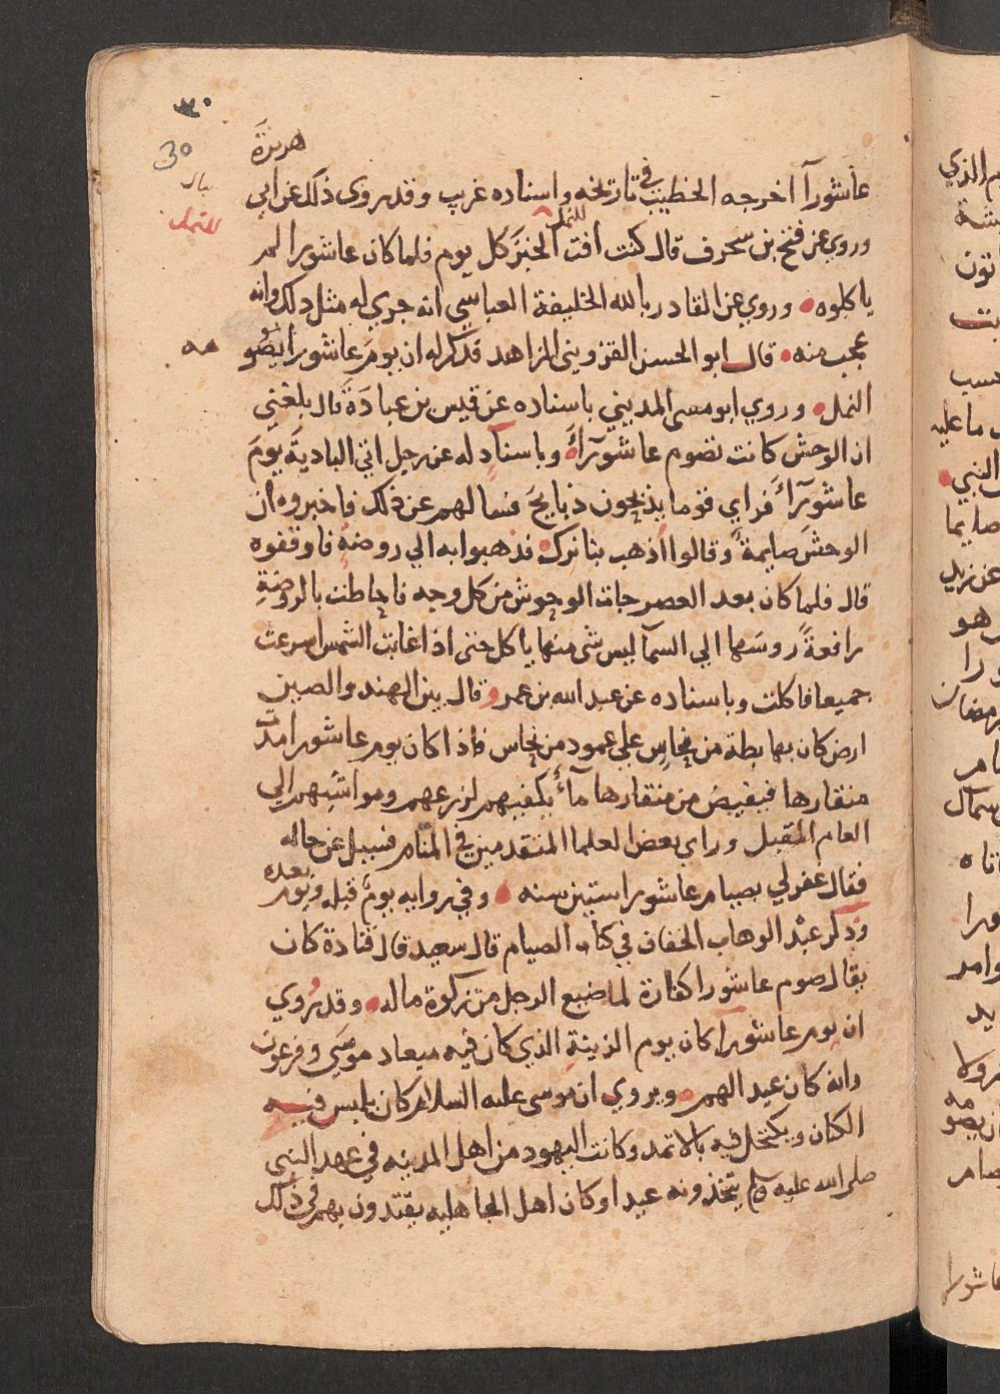 ٣٠
30
هريرة
عاشورآ اخرجه الخطيب في تاريخه واسناده غريب وقد روى ذلك عن ابي
للنمل
وروي عن فتح بن سحرف قال كنت افت الخبز كل يوم فلما كان عاشورا لم
ياكلوه وروي عن القادر بالله الخليفة العباسي انه جري له مثل ذلك وانه
عجب منه قال ابو الحسن القزويني الزاهد فذكر له ان يوم عاشورا يصو
مه
النمل وروي ابو مسى المديني باسناده عن قيس بن عبادة قال بلغني
ان الوحش كانت تصوم عاشورآء وباسناد له عن رجل اتي البادية يوم
عاشورآء فراي قوما يذبحون ذبايح فسالهم عن ذلك فاخبروه ان
الوحش صايمة وقالوا اذهب بنا نرك فذهبوا به الي روضة فاوقفوه
قال فلما كان بعد العصر جات الوحوش من كل وجه فاحاطت بالروضة
رافعة روسها الي السمآ ليس شي منها ياكل حتى اذا غابت الشمس اسرعت
جميعا فاكلت وباسناده عن عبد الله بن عمرو قال بين الهند والصين
ارض كان بها بطة من نحاس علي عمود من نحاس فاذا كان يوم عاشورا مدت
منقارها فيفيض من منقارها مآء يكفيهم لزرعهم ومواشيهم الي
العام المقبل وراي بعض العلما المتقدمين في المنام فسيل عن حاله
فقال غفر لي بصيام عاشورا ستين سنه وفي روايه يوم قبله ويوم بعده
وذكر عبد الوهاب الخفاف في كتاب الصيام قال سعيد قال قتادة كان
يقال صوم عاشورا كفارة لما ضيع الرجل من زكوة ماله وقد روي
ان يوم عاشورا كان يوم الزينة الذي كان فيه ميعاد موسي وفرعون
وانه كان عيد الهم ويروي ان موسى عليه السلام كان يلبس فيه
الكتان ويكتحل فيه بالاثمد وكانت اليهود من اهل المدينه في عهد النبي
صلى الله عليه وسلم يتخذونه عيدا وكان اهل الجاهليه يقتدون بهم في ذلك